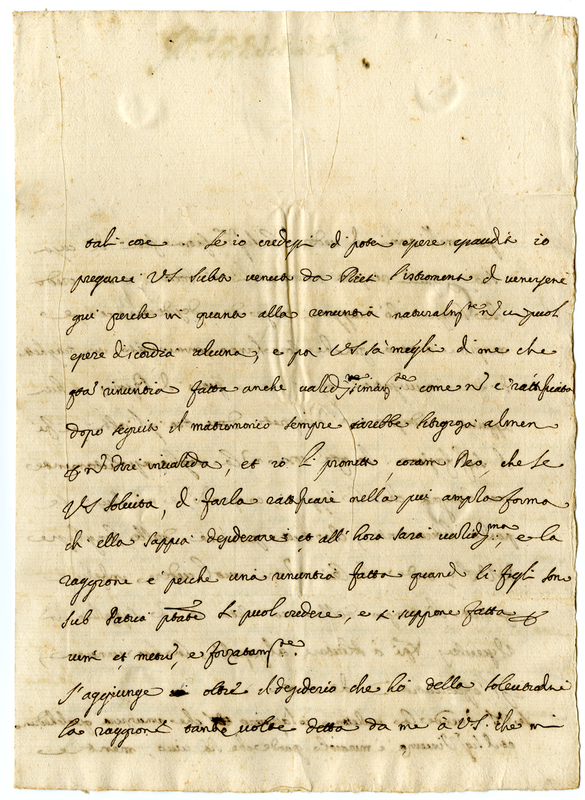 tali cose. Se io credessi di poter essere esaudito io
pregarei VS subito venuto da Pieti l'istromento di venersene
quì perche in quanto alla renuntia naturalmte non ci puol
essere discordia alcuna, e poi VS sà meglio di me che
qta rinuntia fatta anche validissimamte come non è rattificata
dopo seguito il matrimonio sempre sarebbe litigiosa almen
non dire invalida, et io li prometto coram Deo che se
VS solecita, di farla rattificare nella più ampla forma
che ella sappia desiderare et all' hora sarà validma, e la
raggione è perche una rinuntia fatta quando li figli sono
sub Patria ptate si puol credere, e si suppone fatta
vim et metum, e forzatamte.
S'aggiunge oltre il desiderio che hò della solecitudine
la raggione tante volte detta da me à VS. che mi